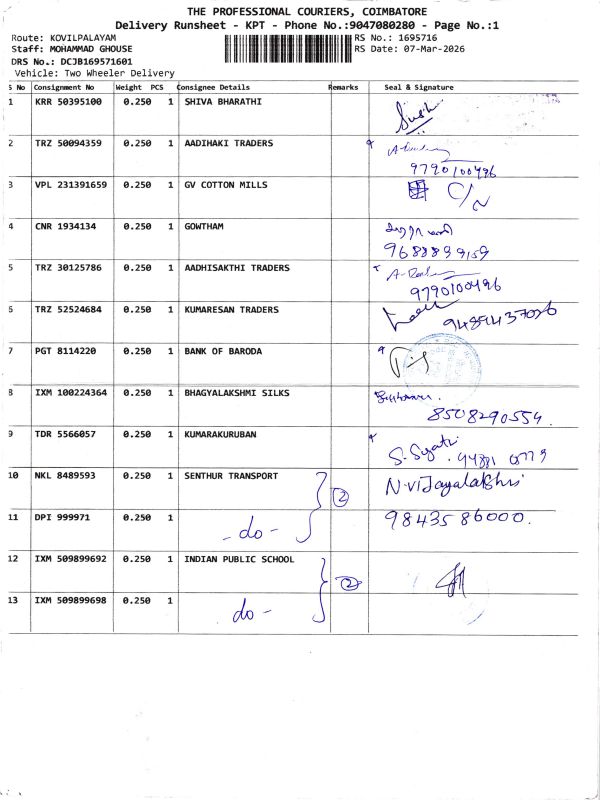 THE PROFESSIONAL COURIERS, COIMBATORE
Delivery Runsheet - KPT - Phone No.:9047080280 - Page No.:1
Route: KOVILPALAYAM
RS No.: 1695716
Staff: MOHAMMAD GHOUSE
RS Date: 07-Mar-2026
DRS No.: DCJB169571601
Vehicle: Two Wheeler Delivery
S No Consignment No Weight PCS Consignee Details Remarks Seal & Signature
1 KRR 50395100 0.250 1 SHIVA BHARATHI
2 TRZ 50094359 0.250 1 AADIHAKI TRADERS
9790100496
3 VPL 231391659 0.250 1 GV COTTON MILLS C/N
4 CNR 1934134 0.250 1 GOWTHAM
9688899159
5 TRZ 30125786 0.250 1 AADHISAKTHI TRADERS
9790100496
6 TRZ 52524684 0.250 1 KUMARESAN TRADERS
7 PGT 8114220 0.250 1 BANK OF BARODA
8 IXM 100224364 0.250 1 BHAGYALAKSHMI SILKS
8508290554.
9 TDR 5566057 0.250 1 KUMARAKURUBAN
10 NKL 8489593 0.250 1 SENTHUR TRANSPORT 2 N.Vijayalakshmi
11 DPI 999971 0.250 1 - do - 9843586000.
12 IXM 509899692 0.250 1 INDIAN PUBLIC SCHOOL 2
13 IXM 509899698 0.250 1 do -